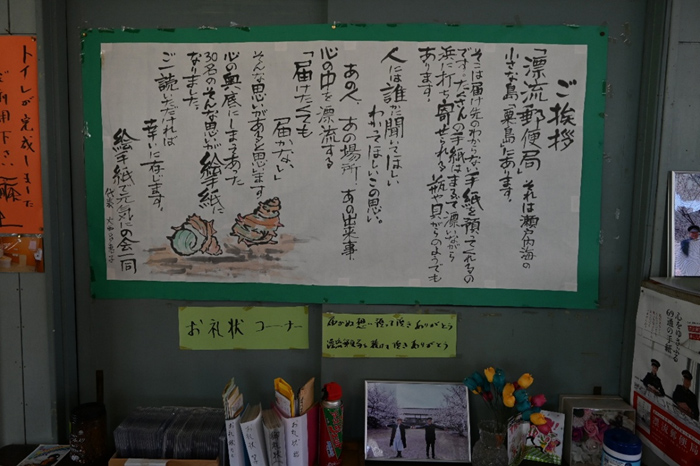 ご挨拶
「漂流郵便局」それは瀬戸内海の
小さな島「粟島」にあります。
そこは届け先のわからない手紙を預ってくれるの
です。たくさんの手紙はまるで漂いながら
浜に打ち寄せられる瓶や貝がらのようでも
あります。
人には誰かに聞いてほしい
わかってほしいこの思い。
あの人、あの場所、あの出来事、
心の中を漂流する
「届けたくても
届かない」
そんな思いがあると思います
心の奥底にしまってあった
30名のそんな思いが絵手紙に
なりました。
ご一読いただければ
幸いに存じます。
絵手紙で元気にの会一同
トイレが完成しました
ご利用下さい
お礼状コーナー
心をゆさぶる
69通の手紙
お礼状
お礼状